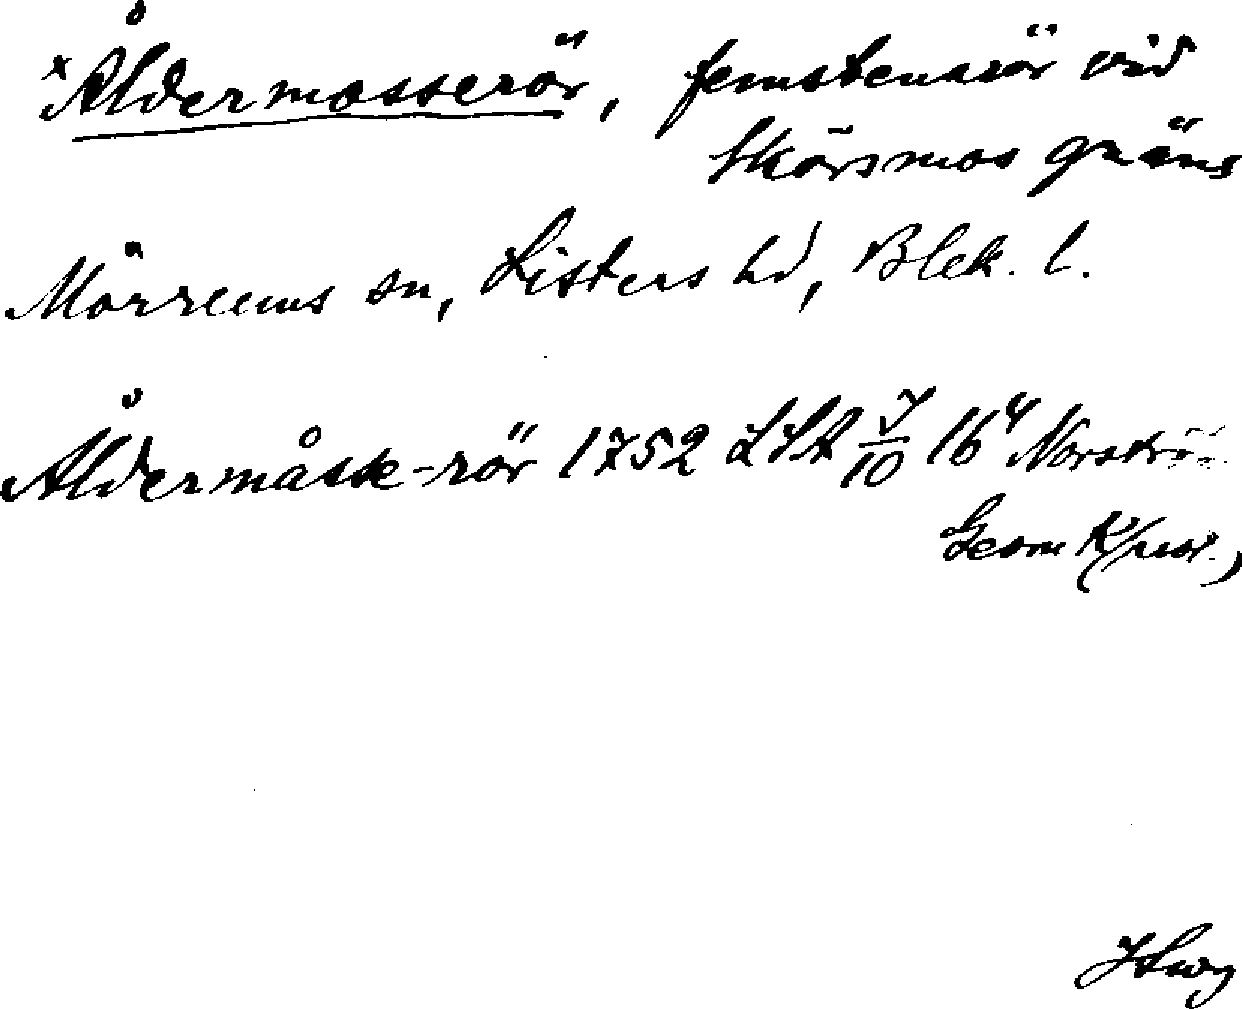 ˣÅldermosserör, femstenarör vid
Skörsmos gräns
Mörrums sn, Listers hd, Blek. l.
Åldermåsse-rör 1752 LSA 7/10 16⁴
Geom